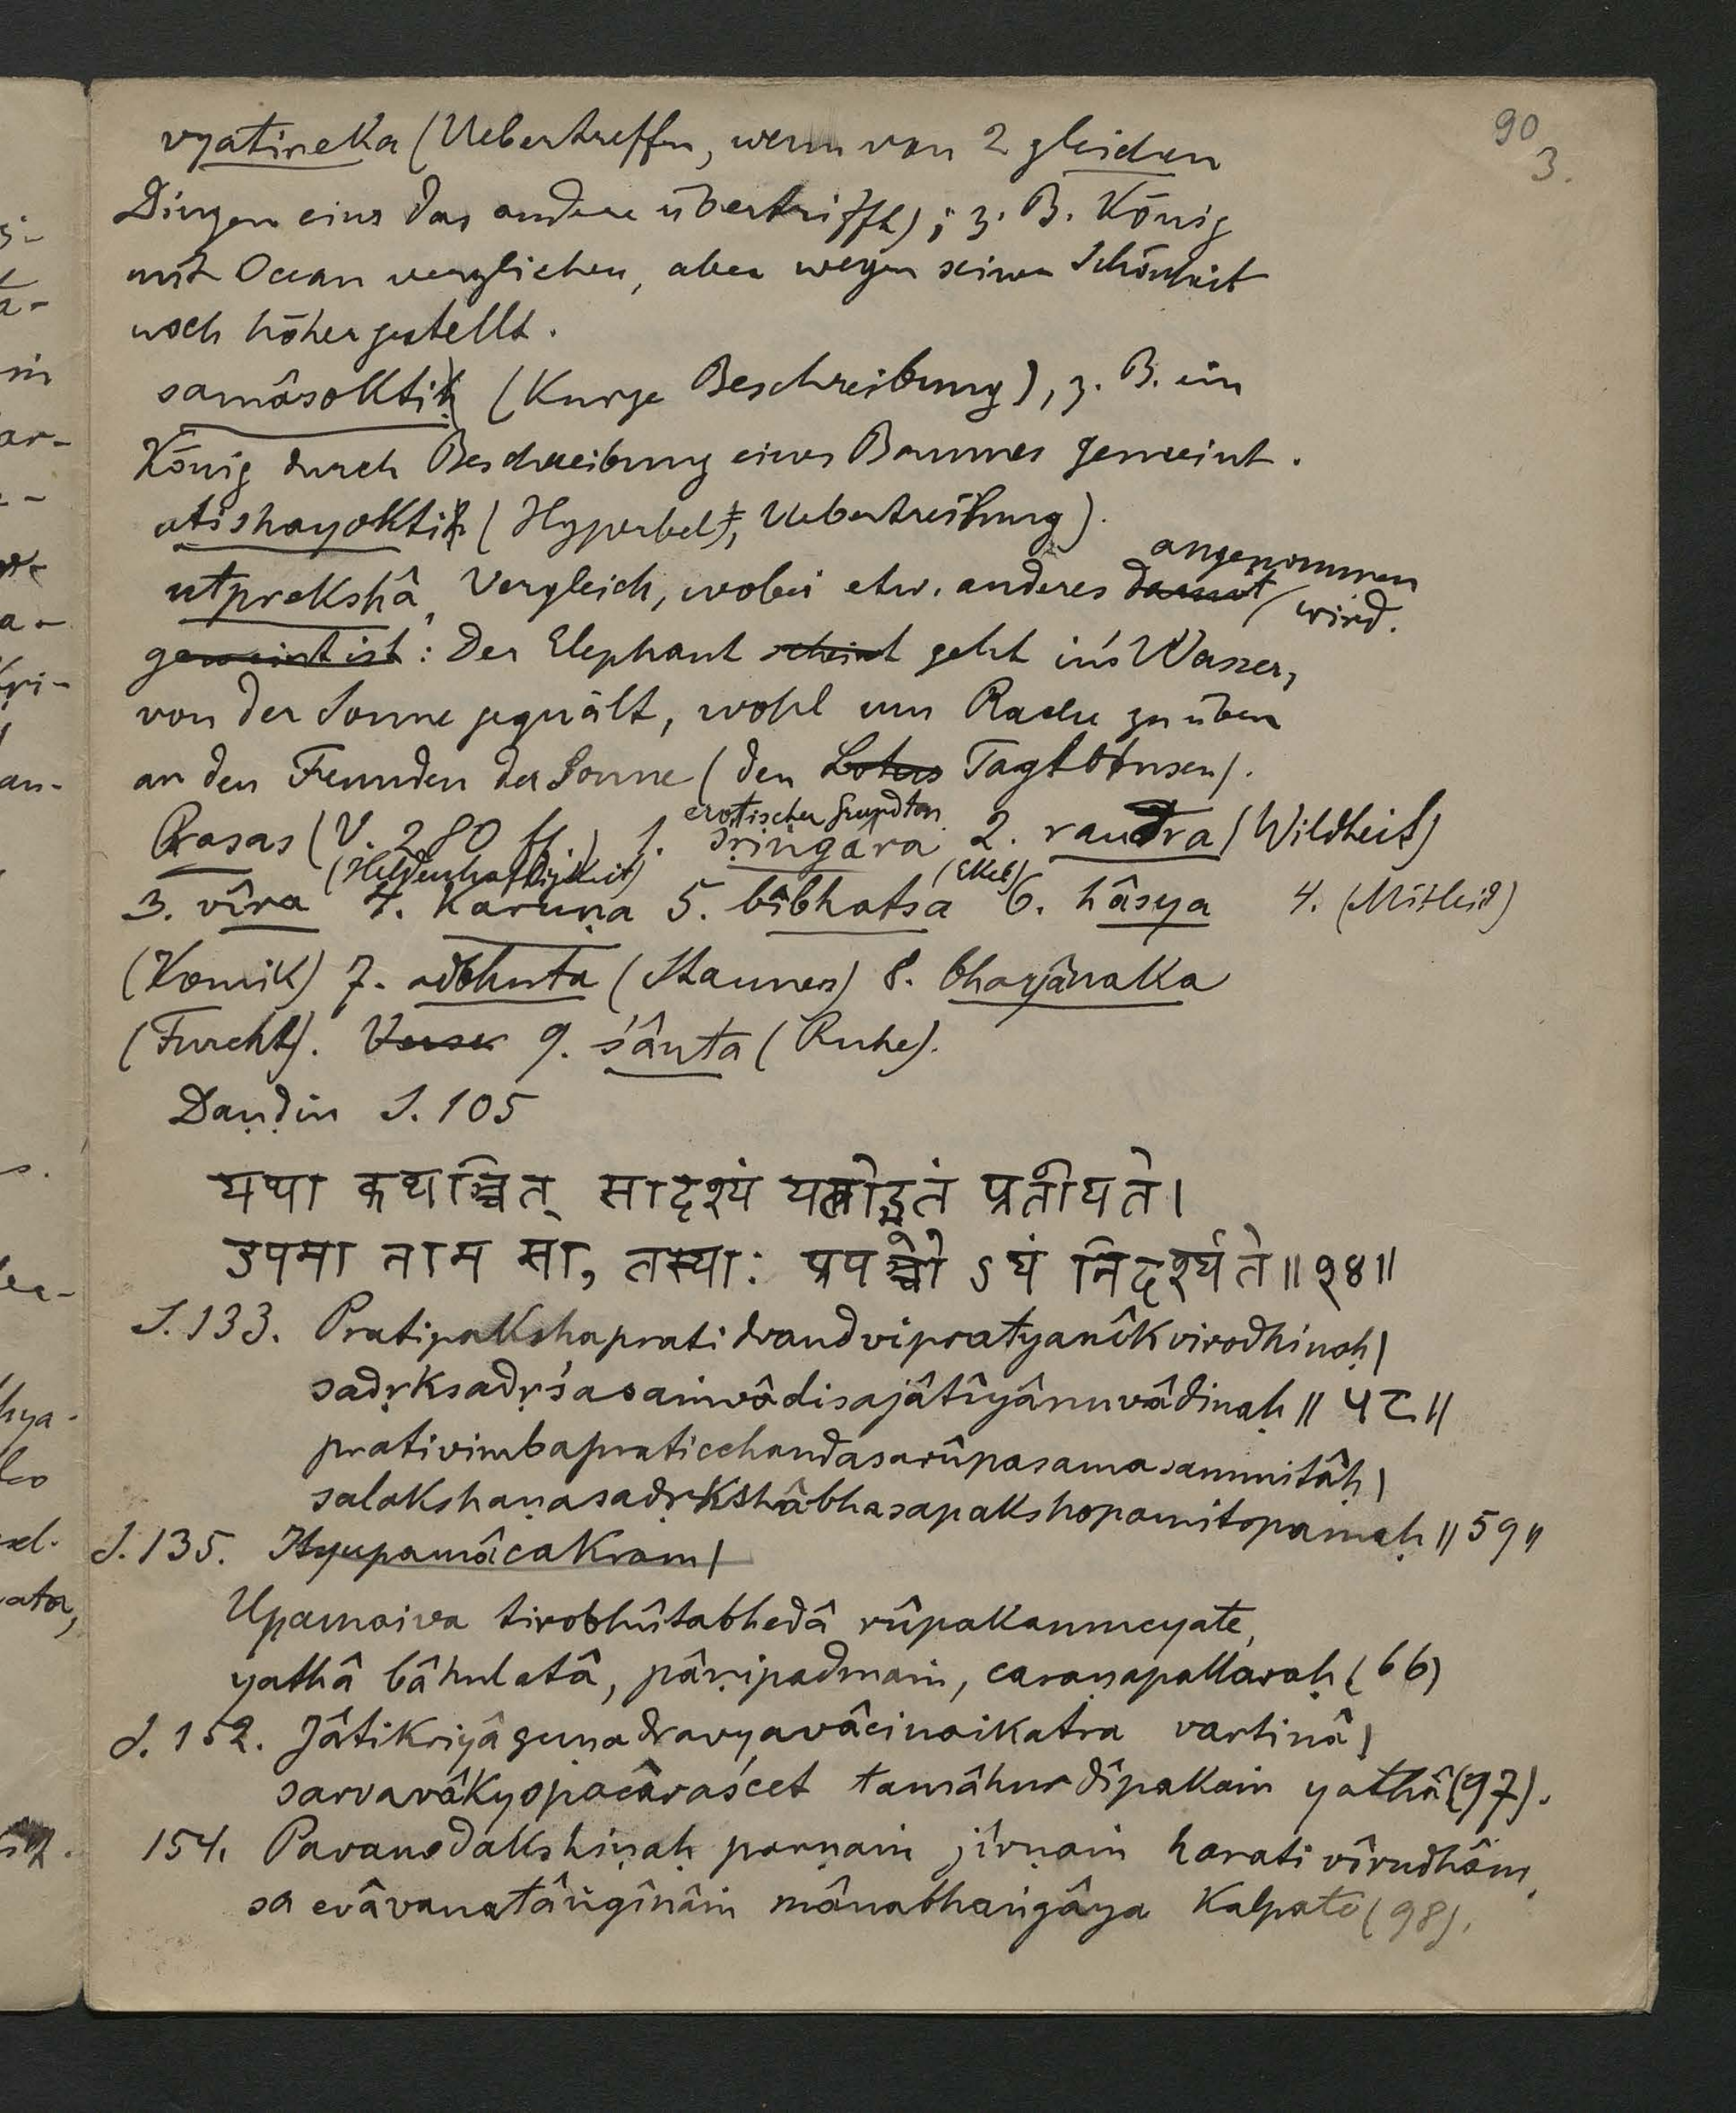 90
3.
vyatireka (Uebertreffen, wenn von 2 gleichen
Dingen eins das andere übertrifft); z. B. König
mit Ocean verglichen, aber wegen seiner Schönheit
noch höher gestellt.
samâsoktiḥ (Kurze Beschreibung), z. B. ein
König durch Beschreibung eines Baumes gemeint.
atishayoktiḥ (Hyperbel, Uebertreibung).
angenommen
utprekshâ, Vergleich, wobei etw. anderes damit wird.
gemeint ist: Der Elephant scheint geht in's Wasser,
von der Sonne gequält, wohl um Rache zu üben
an den Freunden der Sonne (den Lotus Taglotusen).
erotischer Grundton
Rasas (V. 280 ff.) 1. s̛ṛiṅgâra 2. raudra (Wildheit)
(Heldenhaftigkeit) (Ekel)
3. vîra 4. Karuṇa 5. bîbhatsa 6. hâsya 4. (Mitleid)
(Komik) 7. adbhuta (Staunen) 8. bhayânaka
(Furcht). Verse 9. s'ânta (Ruhe).
Daṇḍin S. 105
यथा कथञ्चित् सादृश्यं यत्रोद्भूतं प्रतीयते।
उपमा नाम सा, तस्याः प्रपञ्चो ऽयं निदर्श्यते॥१४॥
S. 133. Pratipakshapratidvandvipratyanîkvirodhinaḥ|
sadṛksadṛs'asaṁvâdisajâtîyânuvâdinaḥ || ५८ ||
prativimbapraticchandasarûpasamasammitâḥ|
salakshaṇasadṛkshâbhasapakshopamitopamaḥ || 59 ||
S. 135. Ityupamâcakram|
Upamaiva tirobhûtabhedâ rûpakamucyate,
yathâ bâhulatâ, pâṇipadmaṁ, caraṇapallavaḥ (66)
S. 152. Jâtikriyâguṇadravyavâcinaikatra vartinâ|
sarvavâkyopacâras'cet tamâhur dîpakaṁ yathâ (97).
154. Pavanodakshiṇaḥ parṇaṁ jîrṇaṁ harati vîrudhâm,
sa evâvanatâṅgînâṁ mânabhaṅgâya kalpate (98).